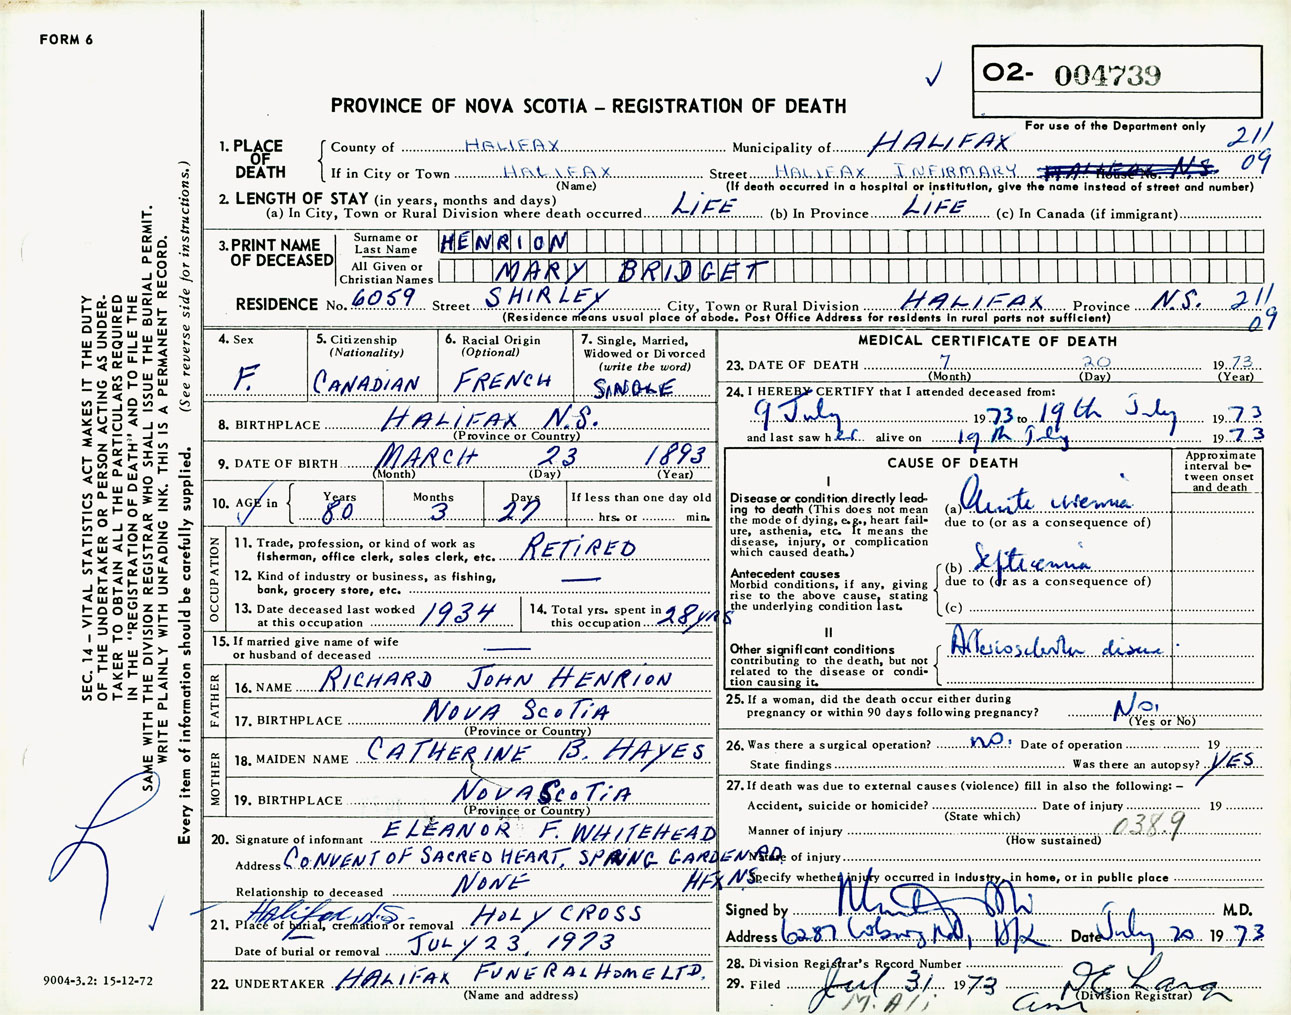 FORM 6
O2- 004739
PROVINCE OF NOVA SCOTIA – REGISTRATION OF DEATH
For use of the Department only
211
09
1. PLACE OF DEATH
County of HALIFAX Municipality of HALIFAX
If in City or Town HALIFAX Street HALIFAX INFIRMARY
(Name) (If death occurred in a hospital or institution, give the name instead of street and number)
2. LENGTH OF STAY (in years, months and days)
(a) In City, Town or Rural Division where death occurred LIFE (b) In Province LIFE (c) In Canada (if immigrant)
3. PRINT NAME OF DECEASED
Surname or Last Name HENRION
All Given or Christian Names MARY BRIDGET
RESIDENCE No. 6059 Street SHIRLEY City, Town or Rural Division HALIFAX Province N.S. 211
09
(Residence means usual place of abode. Post Office Address for residents in rural parts not sufficient)
4. Sex
F.
5. Citizenship
(Nationality)
CANADIAN
6. Racial Origin
(Optional)
FRENCH
7. Single, Married,
Widowed or Divorced
(write the word)
SINGLE
8. BIRTHPLACE HALIFAX N.S.
(Province or Country)
9. DATE OF BIRTH MARCH 23 1893
(Month) (Day) (Year)
10. AGE in Years Months Days If less than one day old
80 3 27 hrs. or min.
OCCUPATION
11. Trade, profession, or kind of work as
fisherman, office clerk, sales clerk, etc. RETIRED
12. Kind of industry or business, as fishing,
bank, grocery store, etc. —
13. Date deceased last worked
at this occupation 1934
14. Total yrs. spent in
this occupation 28 YRS
15. If married give name of wife
or husband of deceased —
FATHER
16. NAME RICHARD JOHN HENRION
17. BIRTHPLACE NOVA SCOTIA
(Province or Country)
MOTHER
18. MAIDEN NAME CATHERINE B. HAYES
19. BIRTHPLACE NOVA SCOTIA
(Province or Country)
20. Signature of informant ELEANOR F. WHITEHEAD
Address CONVENT OF SACRED HEART, SPRING GARDEN RD
Relationship to deceased NONE HFX N.S.
Halifax N.S.
21. Place of burial, cremation or removal HOLY CROSS
Date of burial or removal JULY 23, 1973
22. UNDERTAKER HALIFAX FUNERAL HOME LTD.
(Name and address)
MEDICAL CERTIFICATE OF DEATH
23. DATE OF DEATH 7 20 1973
(Month) (Day) (Year)
24. I HEREBY CERTIFY that I attended deceased from:
9 July 1973 to 19th July 1973
and last saw her alive on 19th July 1973
CAUSE OF DEATH
Approximate
interval be-
tween onset
and death
I
Disease or condition directly lead-
ing to death (This does not mean
the mode of dying, e.g., heart fail-
ure, asthenia, etc. It means the
disease, injury, or complication
which caused death.)
(a) Acute uremia
due to (or as a consequence of)
Antecedent causes
Morbid conditions, if any, giving
rise to the above cause, stating
the underlying condition last.
(b) Septicemia
due to (or as a consequence of)
(c)
II
Other significant conditions
contributing to the death, but not
related to the disease or condi-
tion causing it.
Arteriosclerotic disease
25. If a woman, did the death occur either during
pregnancy or within 90 days following pregnancy? No.
(Yes or No)
26. Was there a surgical operation? no. Date of operation 19
State findings Was there an autopsy? YES
27. If death was due to external causes (violence) fill in also the following: –
Accident, suicide or homicide? Date of injury 19
(State which)
Manner of injury 038.9
(How sustained)
Nature of injury
Specify whether injury occurred in Industry, in home, or in public place
Signed by M.D.
Address 6287 Coburg Rd, Hfx Date July 20 1973
28. Division Registrar's Record Number
29. Filed Jul 31 1973
(Division Registrar)
M. Ali
SEC. 14 – VITAL STATISTICS ACT MAKES IT THE DUTY
OF THE UNDERTAKER OR PERSON ACTING AS UNDER-
TAKER TO OBTAIN ALL THE PARTICULARS REQUIRED
IN THE "REGISTRATION OF DEATH" AND TO FILE THE
SAME WITH THE DIVISION REGISTRAR WHO SHALL ISSUE THE BURIAL PERMIT.
WRITE PLAINLY WITH UNFADING INK. THIS IS A PERMANENT RECORD.
Every item of information should be carefully supplied. (See reverse side for instructions.)
9004-3.2: 15-12-72